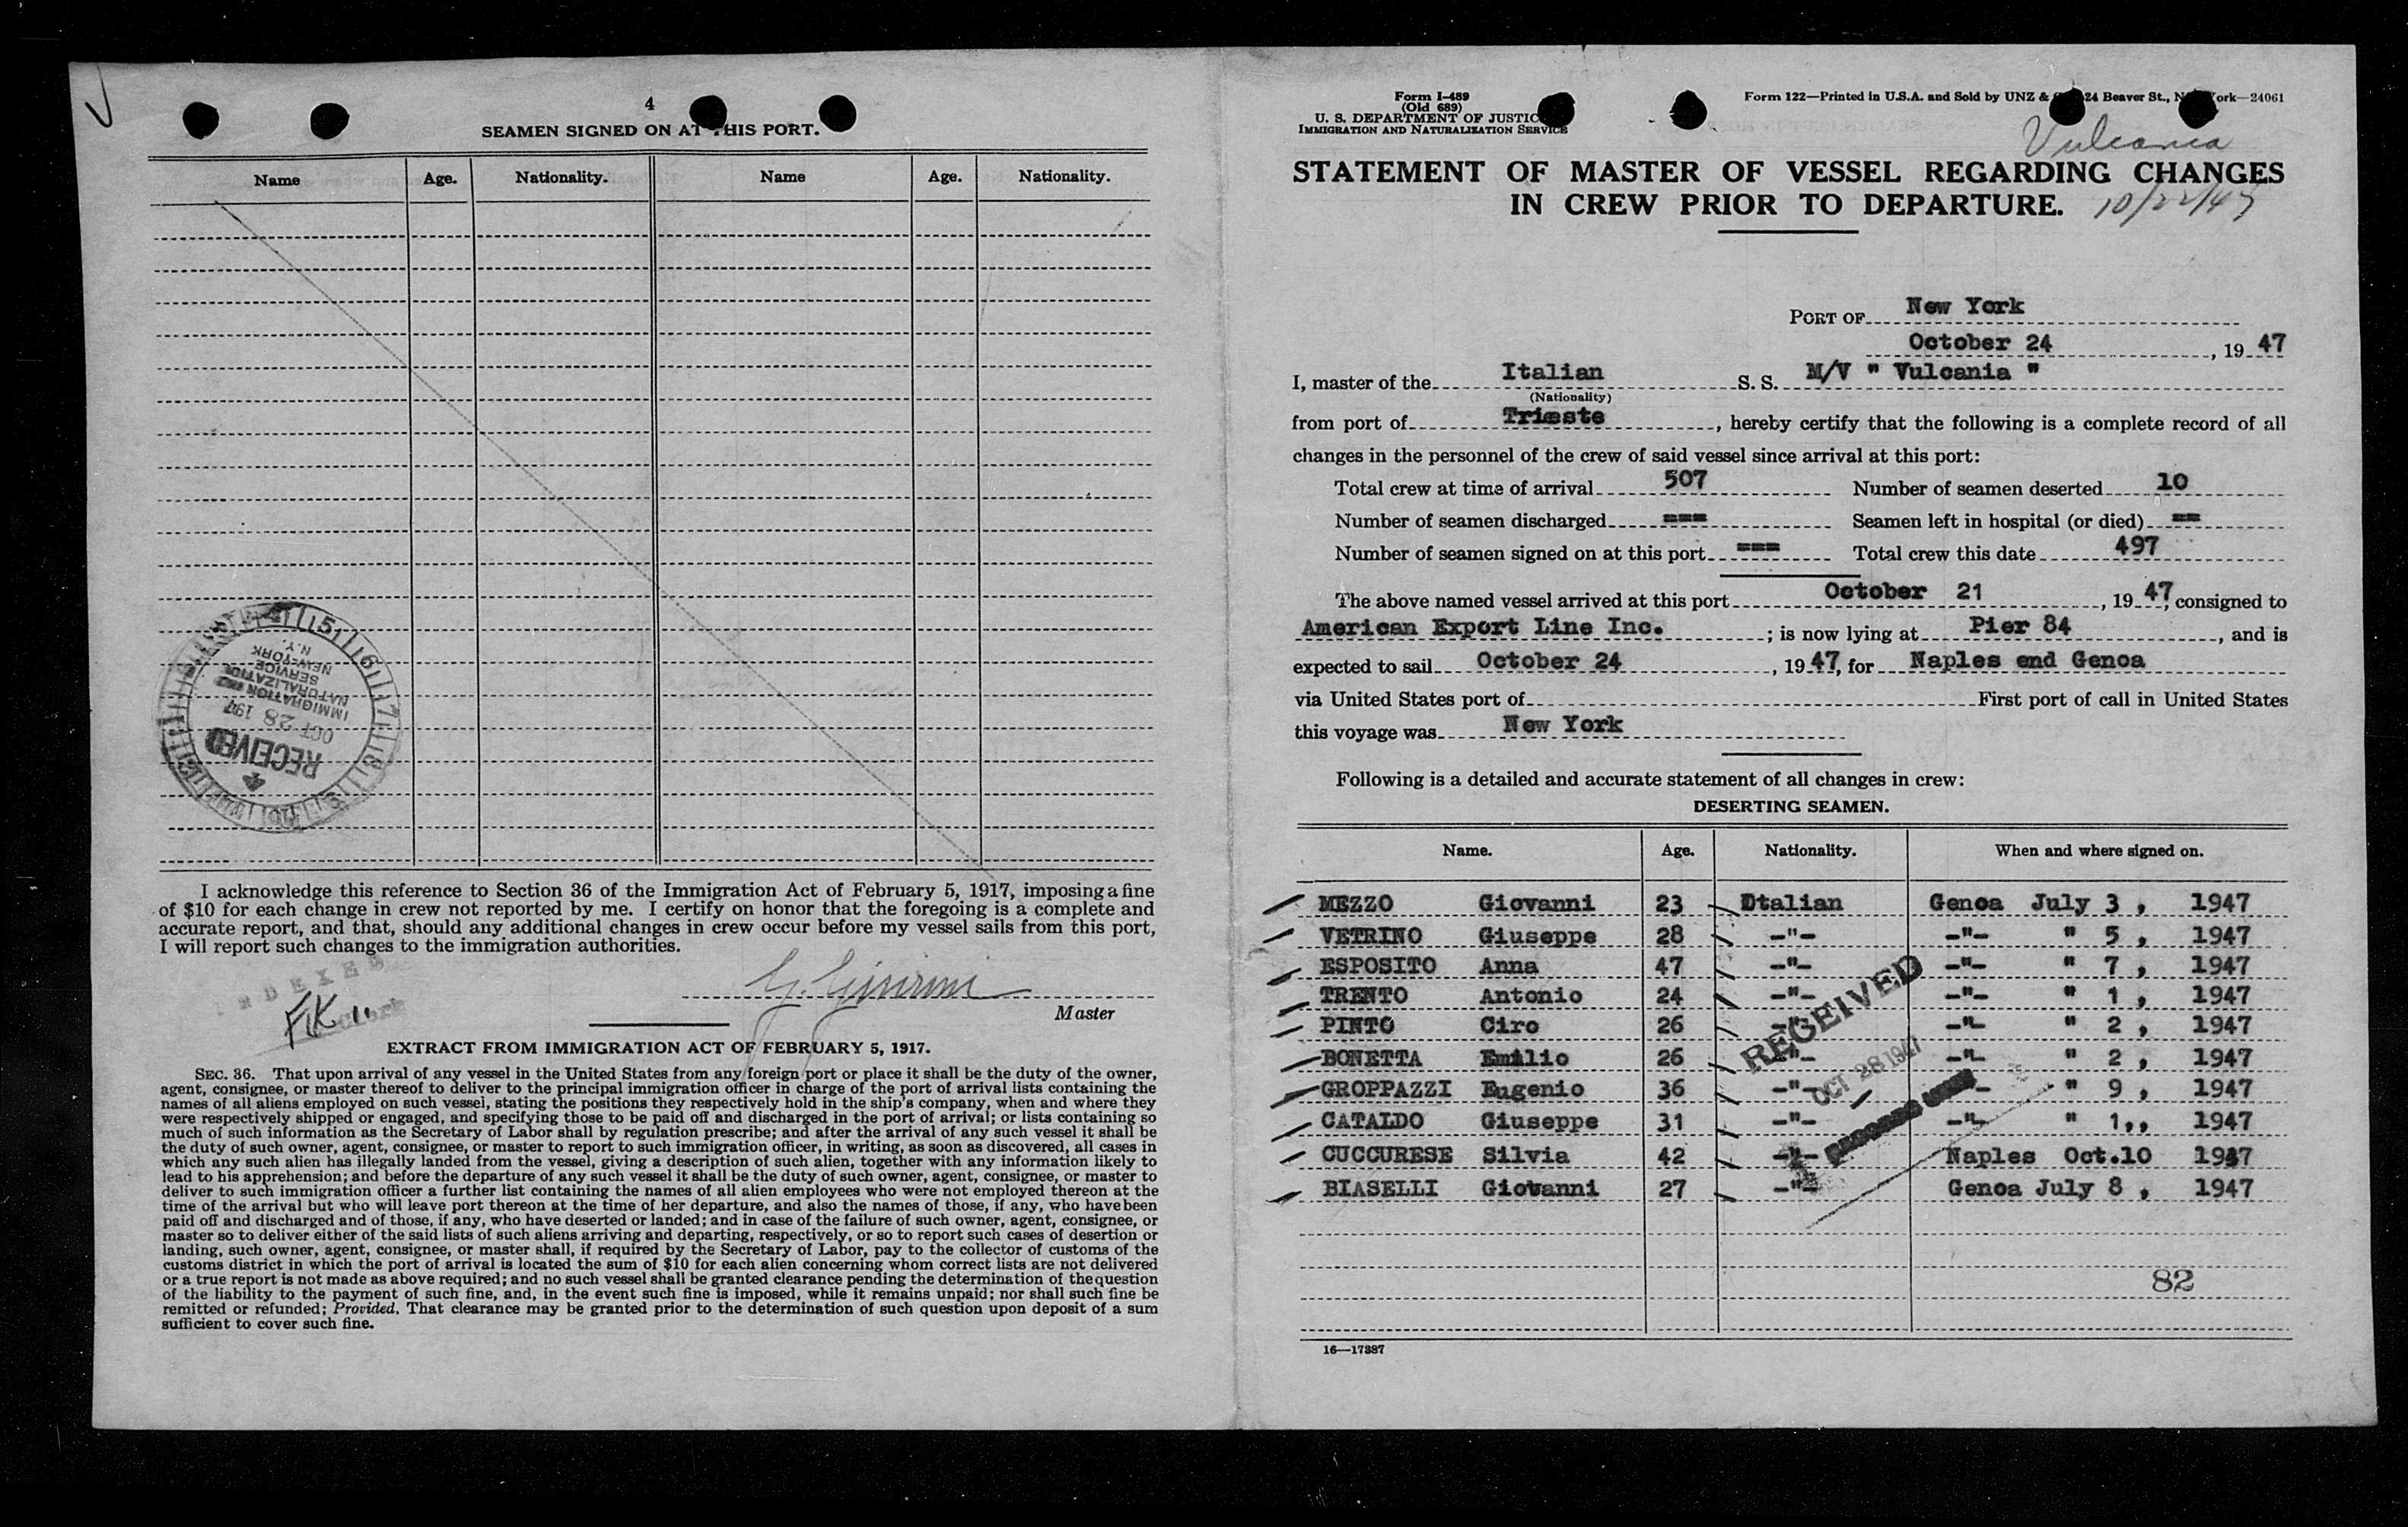 4
SEAMEN SIGNED ON AT THIS PORT.
Name Age. Nationality. Name Age. Nationality.
RECEIVED
OCT 28 194
IMMIGRATION AND
NATURALIZATION
SERVICE
NEW-YORK
N.Y.
I acknowledge this reference to Section 36 of the Immigration Act of February 5, 1917, imposing a fine
of $10 for each change in crew not reported by me. I certify on honor that the foregoing is a complete and
accurate report, and that, should any additional changes in crew occur before my vessel sails from this port,
I will report such changes to the immigration authorities.
Master
EXTRACT FROM IMMIGRATION ACT OF FEBRUARY 5, 1917.
SEC. 36. That upon arrival of any vessel in the United States from any foreign port or place it shall be the duty of the owner,
agent, consignee, or master thereof to deliver to the principal immigration officer in charge of the port of arrival lists containing the
names of all aliens employed on such vessel, stating the positions they respectively hold in the ship's company, when and where they
were respectively shipped or engaged, and specifying those to be paid off and discharged in the port of arrival; or lists containing so
much of such information as the Secretary of Labor shall by regulation prescribe; and after the arrival of any such vessel it shall be
the duty of such owner, agent, consignee, or master to report to such immigration officer, in writing, as soon as discovered, all cases in
which any such alien has illegally landed from the vessel, giving a description of such alien, together with any information likely to
lead to his apprehension; and before the departure of any such vessel it shall be the duty of such owner, agent, consignee, or master to
deliver to such immigration officer a further list containing the names of all alien employees who were not employed thereon at the
time of the arrival but who will leave port thereon at the time of her departure, and also the names of those, if any, who have been
paid off and discharged and of those, if any, who have deserted or landed; and in case of the failure of such owner, agent, consignee, or
master so to deliver either of the said lists of such aliens arriving and departing, respectively, or so to report such cases of desertion or
landing, such owner, agent, consignee, or master shall, if required by the Secretary of Labor, pay to the collector of customs of the
customs district in which the port of arrival is located the sum of $10 for each alien concerning whom correct lists are not delivered
or a true report is not made as above required; and no such vessel shall be granted clearance pending the determination of the question
of the liability to the payment of such fine, and, in the event such fine is imposed, while it remains unpaid; nor shall such fine be
remitted or refunded; Provided, That clearance may be granted prior to the determination of such question upon deposit of a sum
sufficient to cover such fine.
Form I-489
(Old 689)
U. S. DEPARTMENT OF JUSTICE
IMMIGRATION AND NATURALIZATION SERVICE
Form 122—Printed in U.S.A. and Sold by UNZ & 24 Beaver St., New York—24061
Vulcania
STATEMENT OF MASTER OF VESSEL REGARDING CHANGES
IN CREW PRIOR TO DEPARTURE. 10/22/47
PORT OF New York
October 24, 19 47
I, master of the Italian S. S. M/V " Vulcania "
(Nationality)
from port of Trieste, hereby certify that the following is a complete record of all
changes in the personnel of the crew of said vessel since arrival at this port:
Total crew at time of arrival 507 Number of seamen deserted 10
Number of seamen discharged === Seamen left in hospital (or died) ==
Number of seamen signed on at this port === Total crew this date 497
The above named vessel arrived at this port October 21, 19 47, consigned to
American Export Line Inc.; is now lying at Pier 84, and is
expected to sail October 24, 19 47, for Naples end Genoa
via United States port of First port of call in United States
this voyage was New York
Following is a detailed and accurate statement of all changes in crew:
DESERTING SEAMEN.
Name. Age. Nationality. When and where signed on.
MEZZO Giovanni 23 Dtalian Genoa July 3, 1947
VETRINO Giuseppe 28 -"- -"- " 5, 1947
ESPOSITO Anna 47 -"- -"- " 7, 1947
TRENTO Antonio 24 -"- -"- " 1, 1947
PINTO Ciro 26 -"- -"- " 2, 1947
BONETTA Emilio 26 -"- -"- " 2, 1947
GROPPAZZI Eugenio 36 -"- -"- " 9, 1947
CATALDO Giuseppe 31 -"- -"- " 1,, 1947
CUCCURESE Silvia 42 -"- Naples Oct.10 1947
BIASELLI Giovanni 27 -"- Genoa July 8, 1947
RECEIVED
OCT 28 1947
82
16—17387